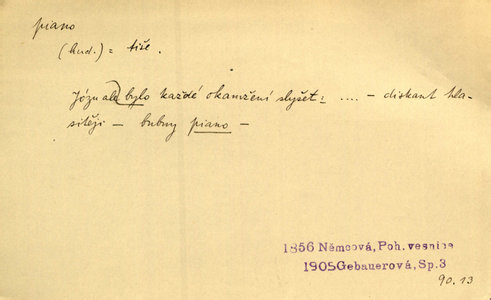 piano
(hud.) = tiše.
Józu ale bylo každé okamžení slyšet: .... – diskant hla-
sitěji – bubny piano –
1856 Němcová, Poh. vesnice
1905 Gebauerová, Sp.3
90.13